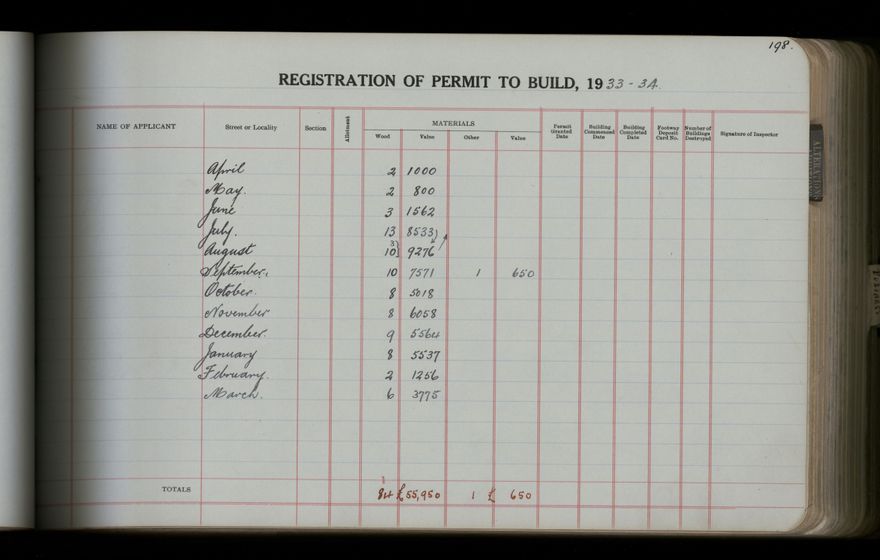 198.
REGISTRATION OF PERMIT TO BUILD, 1933-34.
NAME OF APPLICANT Street or Locality Section Allotment MATERIALS Wood Value Other Value Permit Granted Date Building Commenced Date Building Completed Date Footway Deposit Card No. Number of Buildings Destroyed Signature of Inspector
April 2 1000
May. 2 800
June 3 1562
July. 13 8533
August 10 9276
September. 10 7571 1 650
October. 8 5018
November 8 6058
December. 9 5564
January 8 5537
February. 2 1256
March. 6 3775
TOTALS 84 £55,950 1 £ 650
ALTERATIONS